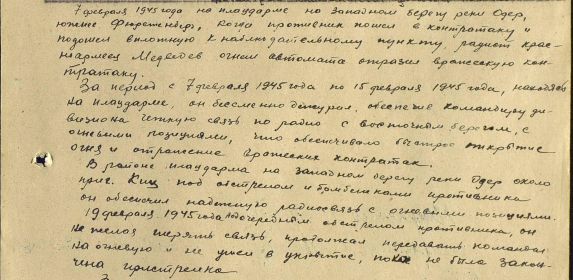 7 февраля 1945 года на плацдарме на западном берегу реки Одер,
южнее Фюрстенберг, когда противник пошел в контратаку и
подошел вплотную к наблюдательному пункту, радист крас-
ноармеец Медведев огнем автомата отразил вражескую кон-
тратаку.
За период с 7 февраля 1945 года по 15 февраля 1945 года, находясь
на плацдарме, он бессменно дежурил, обеспечив командиру ди-
визиона четкую связь по радио с восточным берегом, с
огневыми позициями, что обеспечивало быстрое открытие
огня и отражение вражеских контратак.
В районе плацдарма на западном берегу реки Одер около
приг. Киц под обстрелом и бомбежками противника
он обеспечил надежную радиосвязь с огневыми позициями.
19 февраля 1945 года под очередным обстрелом противника, он
не желая терять связь, продолжал передавать команды
на огневую и не ушел в укрытие, пока не была закон-
чена пристрелка